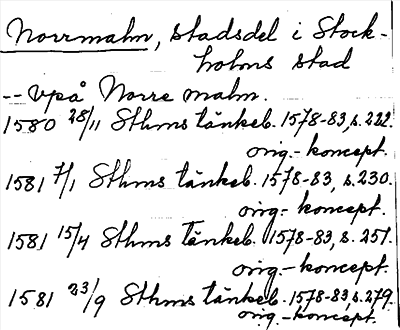 Norrmalm, stadsdel i Stock-
holms stad
-- vpå Norre malm.
1580 28/11 Sthms tänkeb. 1578-83, s. 222.
orig.- koncept.
1581 7/1 Sthms tänkeb. 1578-83, s. 230.
orig.- koncept.
1581 15/4 Sthms tänkeb. 1578-83, s. 251.
orig.- koncept.
1581 23/9 Sthms tänkeb. 1578-83, s. 279.
orig.- koncept.